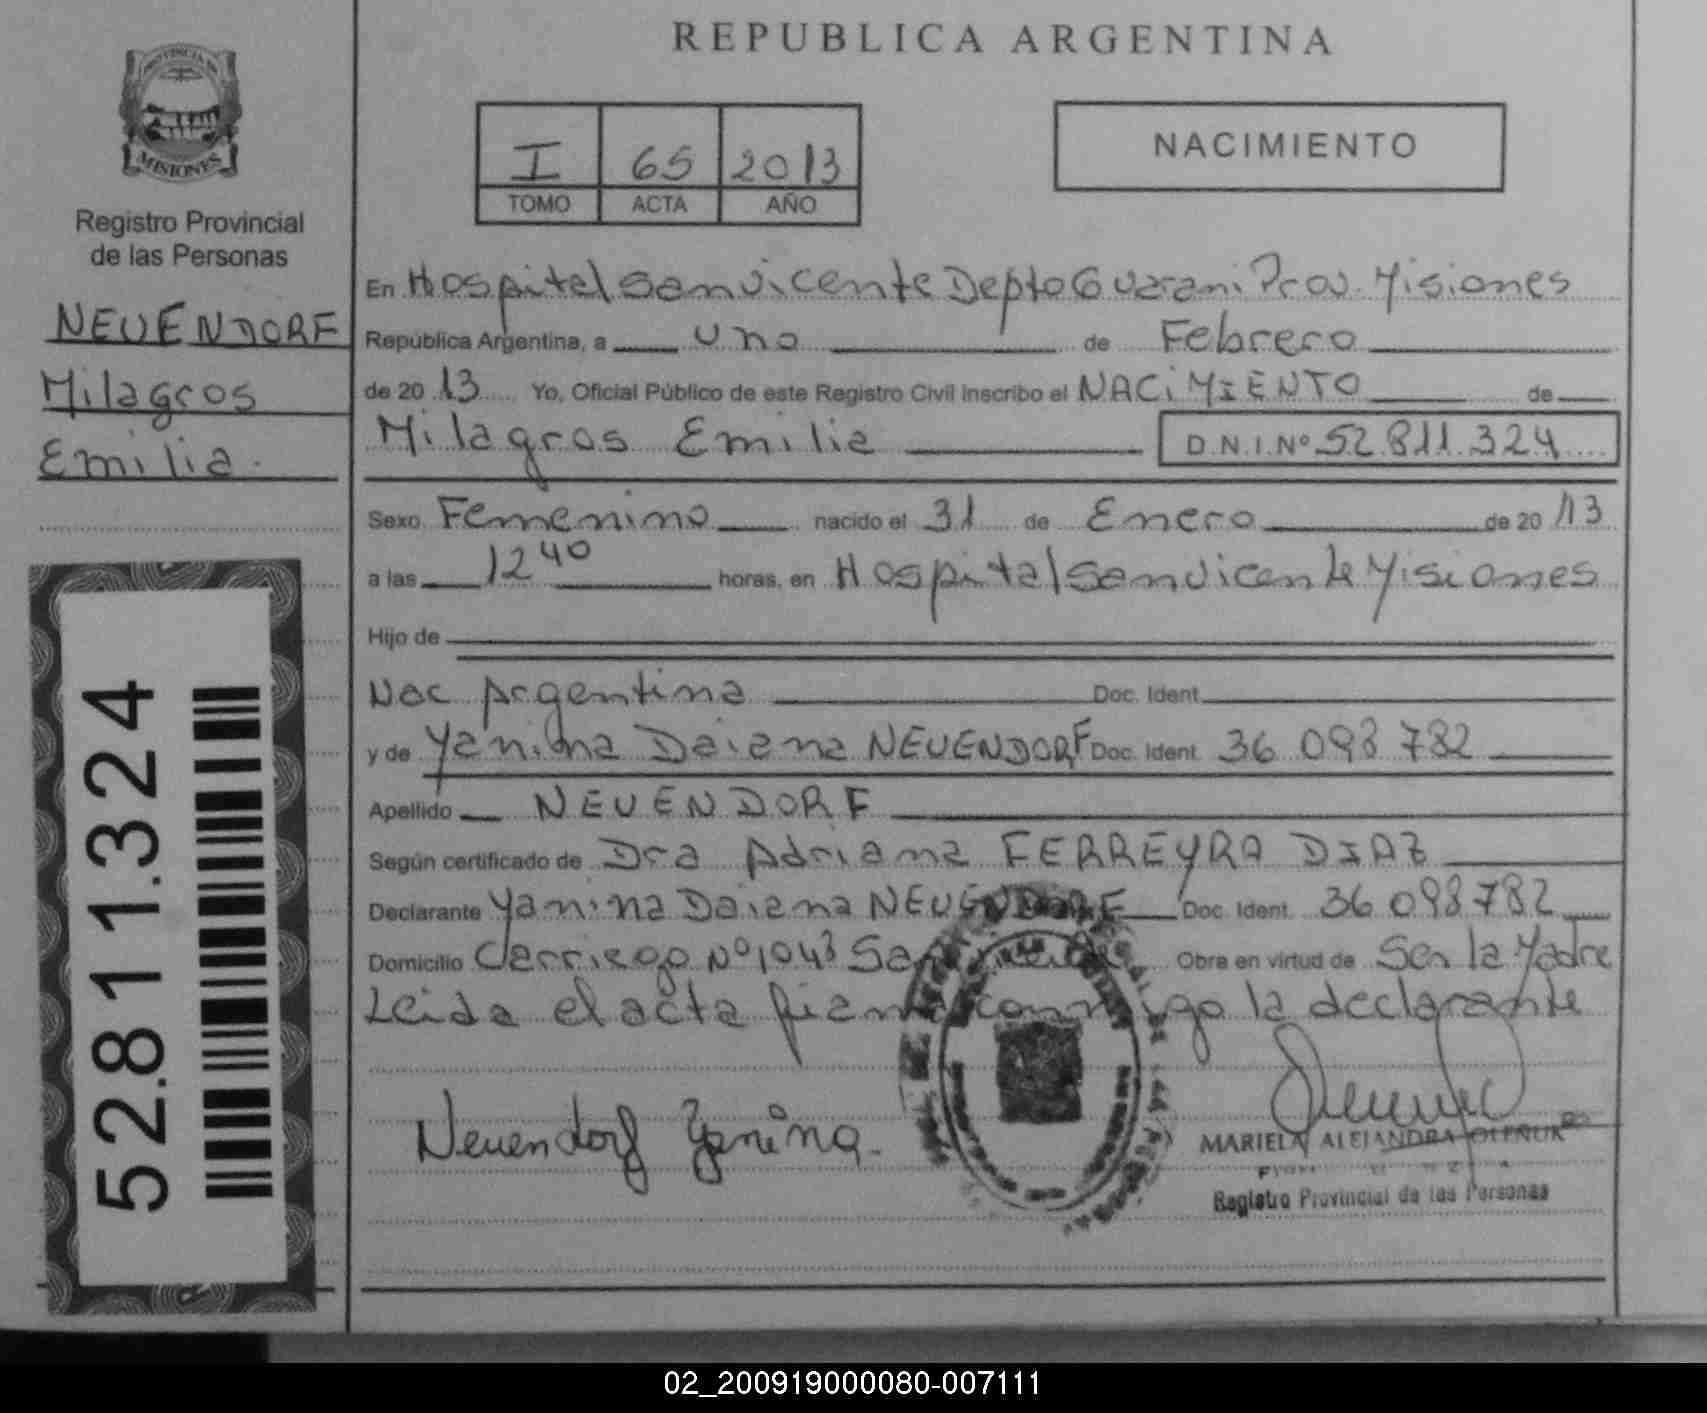 REPUBLICA ARGENTINA
PROVINCIA DE
MISIONES
Registro Provincial
de las Personas
NEUENDORF
Milagros
Emilia.
52.811.324
I 65 2013
TOMO ACTA AÑO
NACIMIENTO
En Hospital San Vicente Depto Guarani Prov. Misiones
República Argentina, a uno de Febrero
de 20 13 Yo, Oficial Público de este Registro Civil inscribo el NACIMIENTO de
Milagros Emilia D.N.I.Nº 52.811.324
Sexo Femenino nacido el 31 de Enero de 20 13
a las 12 40 horas, en Hospital San Vicente Misiones
Hijo de
Nac Argentina Doc. Ident.
y de Yanina Daiana NEUENDORF Doc. Ident. 36 098 782
Apellido NEUENDORF
Según certificado de Dra Adriana FERREYRA DIAZ
Declarante Yanina Daiana NEUENDORF Doc. Ident. 36 098 782
Domicilio Carriego Nº 1043 San Obra en virtud de Ser la Madre
Leida el acta firma conmigo la declarante
Neuendorf Yanina.
MARIELA ALEJANDRA OLEÑUK
Registro Provincial de las Personas
02_200919000080-007111